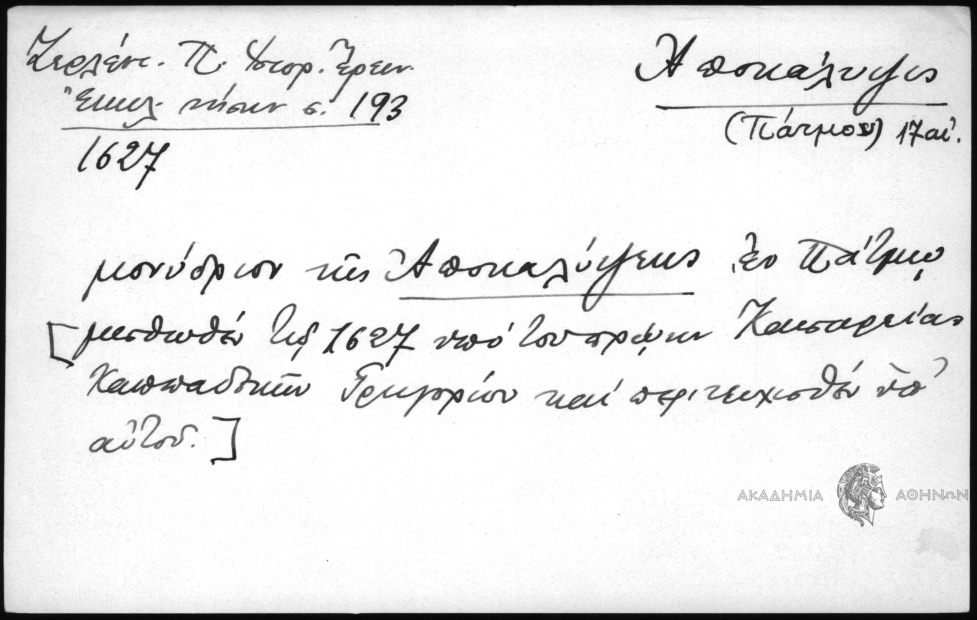 Ζερλέντ. Π. Ἱστορ. Ἔρευν.
Ἐκκλ. νήσων σ. 193
1627
Ἀποκάλυψις
(Πάτμου) 17 αἰ.
μονύδριον τῆς Ἀποκαλύψεως ἐν Πάτμῳ
[μισθωθὲν τῷ 1627 ὑπὸ τοῦ πρώην Καισαρείας
Καππαδοκῶν Γρηγορίου καὶ περιτειχισθὲν ὑπ'
αὐτοῦ.]
ΑΚΑΔΗΜΙΑ ΑΘΗΝΩΝ